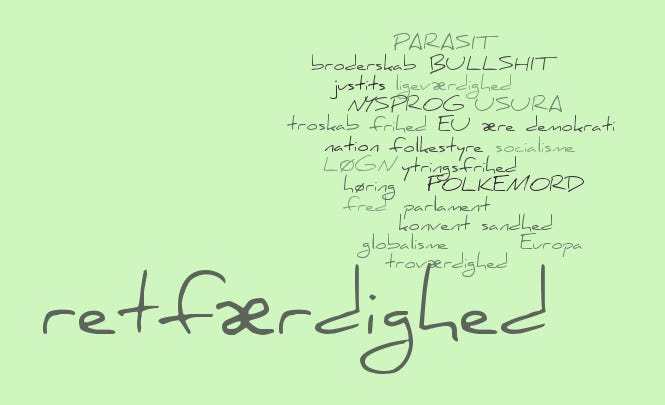 PARASIT
broderskab BULLSHIT
justits ligeværdighed
NYSPROG USURA
troskab frihed EU ære demokrati
nation folkestyre socialisme
LØGN ytringsfrihed
høring FOLKEMORD
fred parlament
konvent sandhed
globalisme Europa
troværdighed
retfærdighed